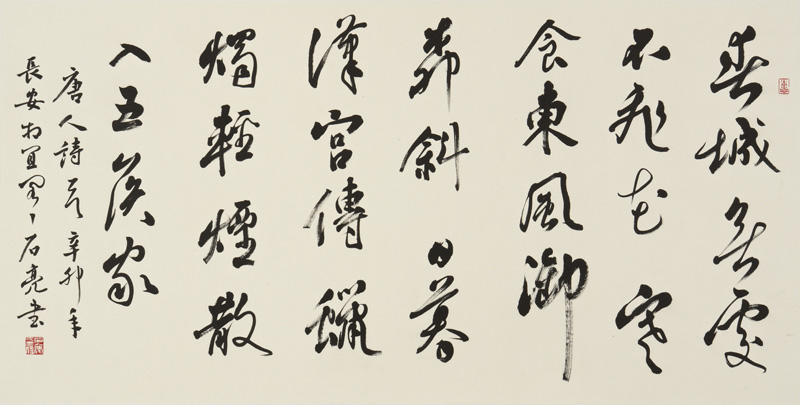 春城無處
不飛花寒
食東風御
柳斜日暮
漢宮傳蠟
燭輕煙散
入五侯家
唐人詩 辛卯年
長安 石亮書